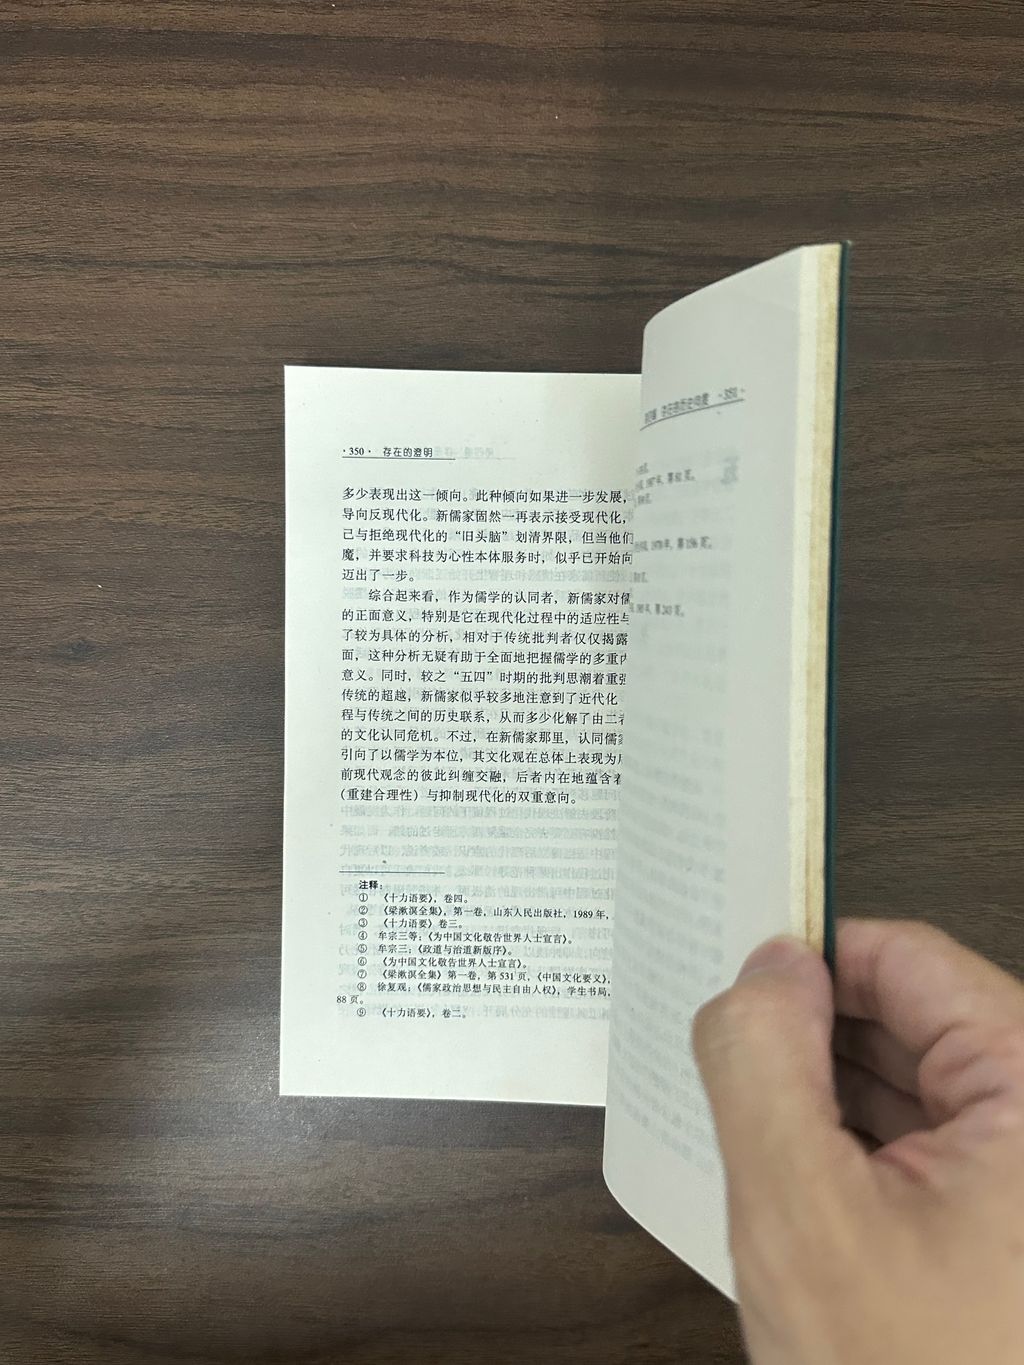 ·350· 存在的澄明
多少表现出这一倾向。此种倾向如果进一步发展,
导向反现代化。新儒家固然一再表示接受现代化,
己与拒绝现代化的“旧头脑”划清界限，但当他们
魔，并要求科技为心性本体服务时，似乎已开始向
迈出了一步。
综合起来看，作为儒学的认同者，新儒家对儒
的正面意义，特别是它在现代化过程中的适应性与
了较为具体的分析，相对于传统批判者仅仅揭露
面，这种分析无疑有助于全面地把握儒学的多重内
意义。同时，较之“五四”时期的批判思潮着重强
传统的超越，新儒家似乎较多地注意到了近代化
程与传统之间的历史联系，从而多少化解了由二者
的文化认同危机。不过，在新儒家那里，认同儒家
引向了以儒学为本位，其文化观在总体上表现为
前现代观念的彼此纠缠交融，后者内在地蕴含着
(重建合理性) 与抑制现代化的双重意向。
注释：
① 《十力语要》，卷四。
② 《梁漱溟全集》，第一卷，山东人民出版社，1989 年，
③ 《十力语要》卷三。
④ 牟宗三等：《为中国文化敬告世界人士宣言》。
⑤ 牟宗三：《政道与治道新版序》。
⑥ 《为中国文化敬告世界人士宣言》。
⑦ 《梁漱溟全集》第一卷，第 531 页，《中国文化要义》，
⑧ 徐复观：《儒家政治思想与民主自由人权》，学生书局，
88 页。
⑨ 《十力语要》，卷二。